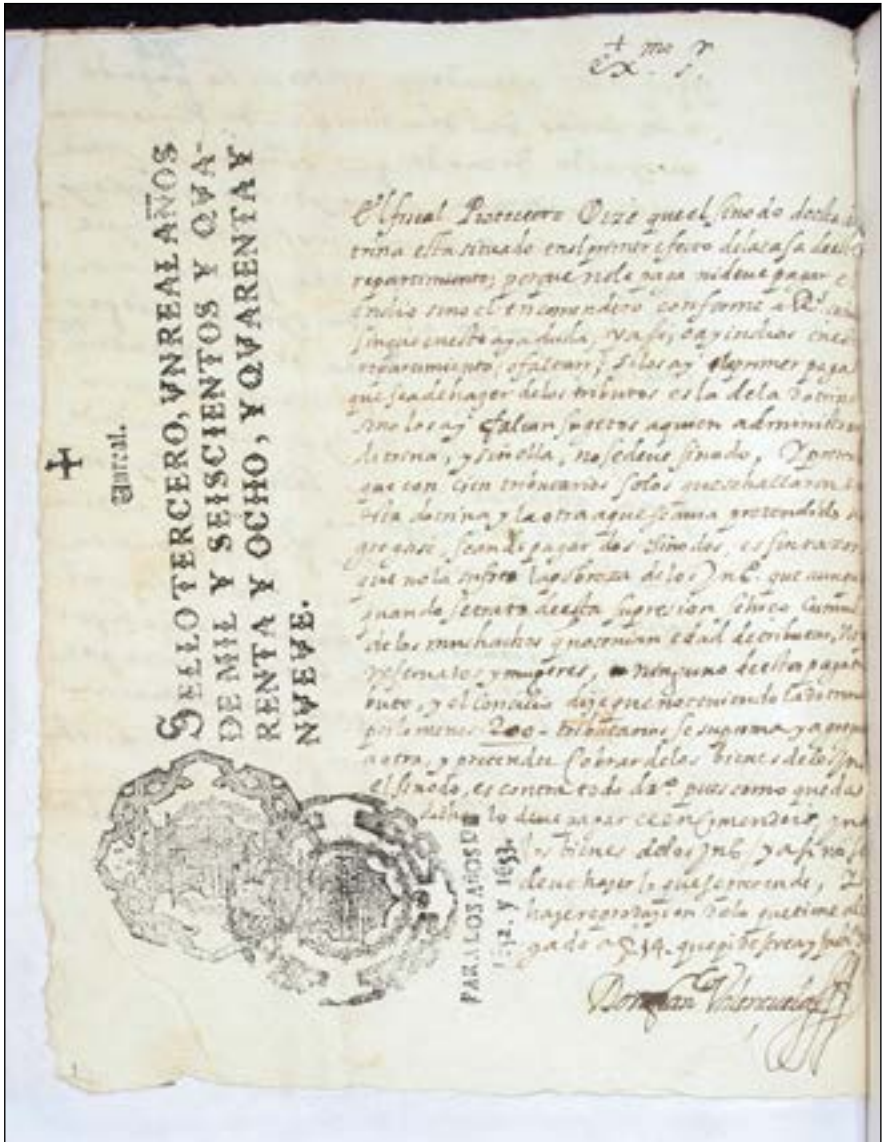 Exmo Sr
Un real.
SELLO TERCERO, VN REAL AÑOS
DE MIL Y SEISCIENTOS Y QVA-
RENTA Y OCHO, Y QVARENTA Y
NVEVE.
PARA LOS AÑOS DE
1652. y 1653.
El fiscal Protector Dize que el sinodo de la do
trina esta situado en el primer efecto de la tasa deste
repartimiento; porque no le paga ni deve pagar el
yndio sino el encomendero conforme a
sin que en esto aya duda, y assi, o ay indios en el
repartimiento, o faltan; si los ay el primer paga
que se a de hazer de los tributos es la de la dotrina
sino los ay faltan sugetos a quien administrar
dotrina, y sin ella, no se deve sinodo,
que con cien tributarios solos que se hallaron en
esta dotrina y la otra a que se avia pretendido a
gregase, se an de pagar dos sinodos, es sin razon
que no la sufre la pobreza de los Yns. que aunque
quando se trato de esta supresion se hizo
de los muchachos q no tenian edad de tributar,
reservados y mugeres, ninguno de estos paga tri
buto, y el Concilio dize que no teniendo la dotrina
por lo menos 200 tributarios se suprima y agregue
a otra, y pretender Cobrar de los bienes de los Yns
el sinodo, es contra todo dro. pues como queda
dicho lo deve pagar el encomendero, y no
los bienes de los Yns. y assi no se
deve hazer lo que se pretende,
haze reproduzion de lo que tiene ale
gado a f. 14. que pide se vea y
Don Juan Valenzuela